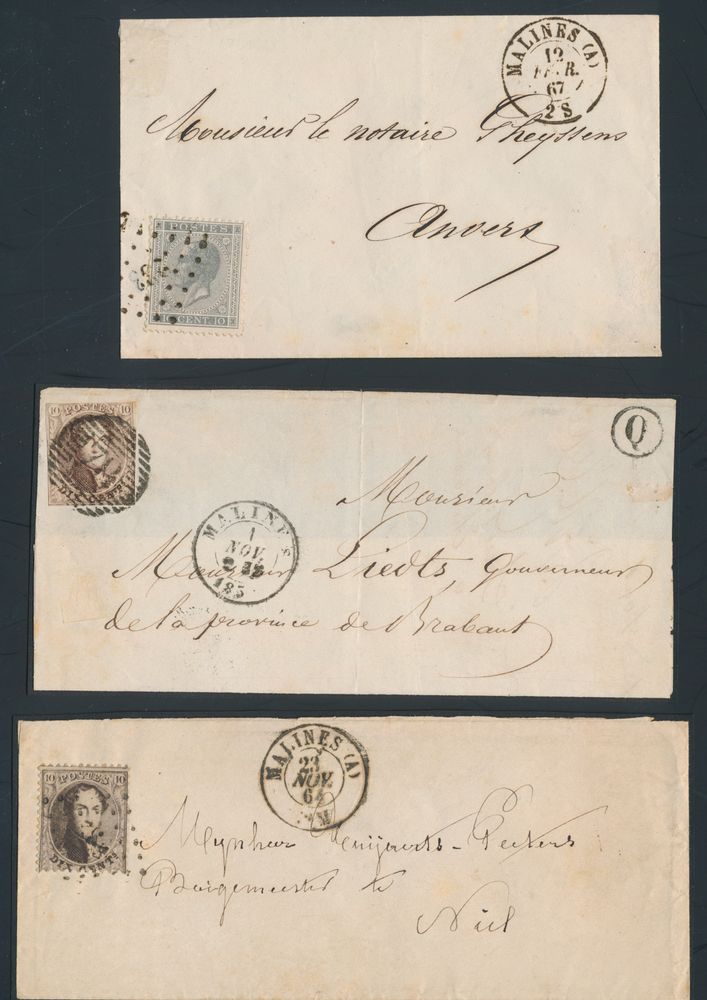 MALINES (A)
12
FEVR.
67
2S
Monsieur le notaire Gheyssens
Anvers
POSTES
10 CENT. 10
10 POSTES 10
DIX CENT.
Q
MALINES
1
NOV.
185
Monsieur
Monsieur Liedts, Gouverneur
de la province de Brabant
MALINES (A)
23
NOV.
64
M
10 POSTES 10
DIX CENT.
Mynheer
Borgemeester te
Niel